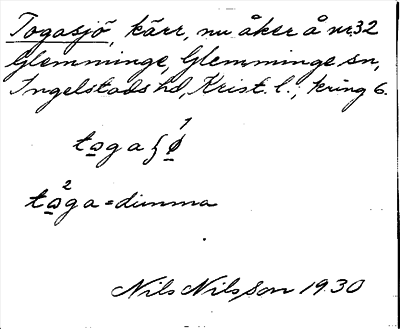 Togasjö, kärr, nu åker å nr 32
Glemminge, Glemminge sn,
Ingelstads hd, Krist. l.; kring 6.
1
2
toga = dimma
Nils Nilsson 1930